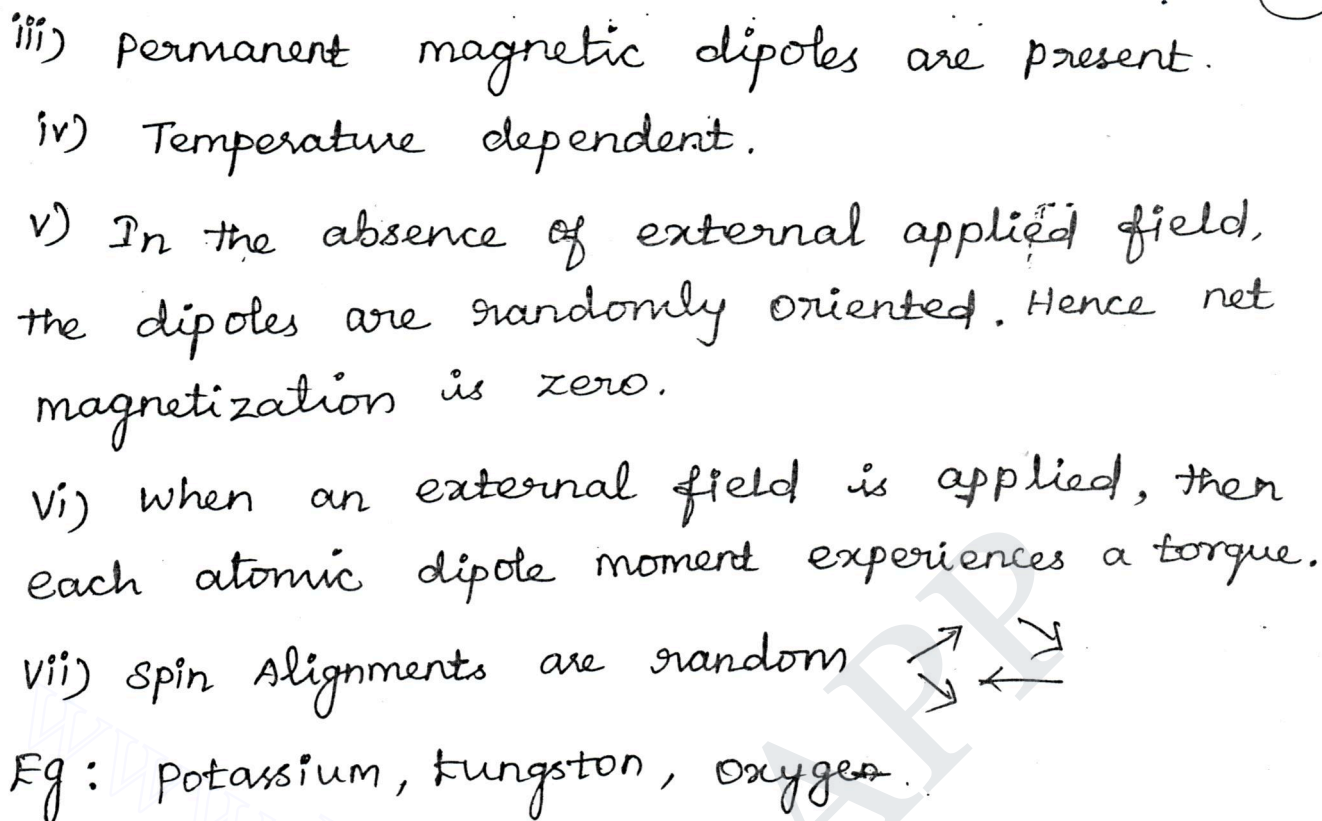 iii) Permanent magnetic dipoles are present.
iv) Temperature dependent.
v) In the absence of external applied field,
the dipoles are randomly oriented. Hence net
magnetization is zero.
vi) when an external field is applied, then
each atomic dipole moment experiences a torque.
vii) Spin Alignments are random
Eg: Potassium, tungston, oxygen.
APP